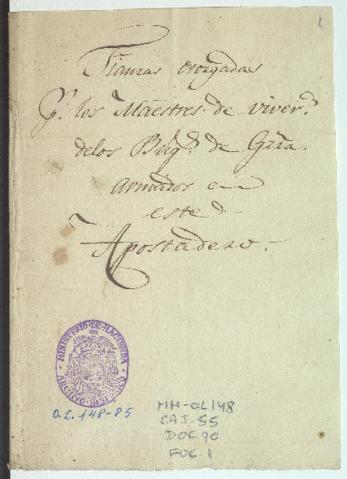 1
Fianzas otorgadas
p.r los Maestres de viver.s
de los Buq.s de Grra.
armados en
este
Apostadero.
MINISTERIO-DE-HACIENDA
ARCHIVO HISTORICO
O.L. 148-85
MH-OL148
CAJ-55
DOC90
FOL-1